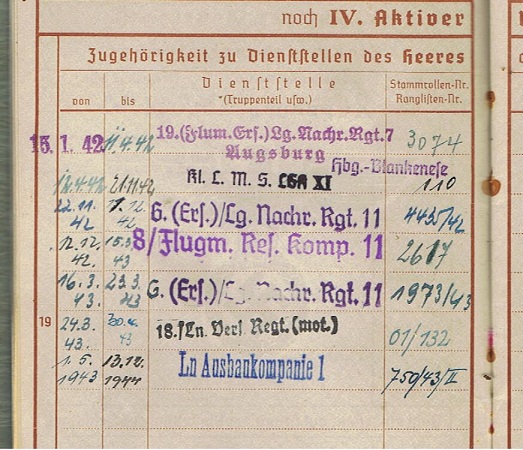 noch IV. Aktiver
Zugehörigkeit zu Dienststellen des Heeres
von bis Dienststelle *(Truppenteil usw.) Stammrollen-Nr. Ranglisten-Nr.
15. 1. 42 11.4.42 19. (Flum. Ers.) Lg. Nachr. Rgt. 7 3074
Augsburg
Hbg.-Blankenese
12.4.42 21.11.42 Kl. L. M. S. LGA XI 110
22.11. 42 11.12. 42 G. (Ers.)/Lg. Nachr. Rgt. 11 4435/42
12.12. 42. 15.3. 43 8/Flugm. Res. Komp. 11 2617
16.3. 43. 23.3. 43 G. (Ers.)/Lg. Nachr. Rgt. 11 1973/43
19 24.3. 43. 30.4. 43 18./Ln. Vers. Regt. (mot.) 01/132
1.5. 1943 13.12. 1944 Ln Ausbaukompanie 1 750/43/II